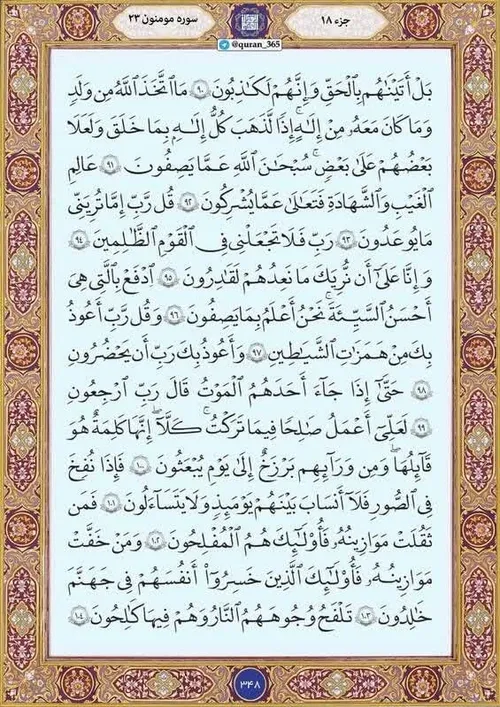 جزء ۱۸
@quran_365
سوره مومنون ۲۳
بَلْ أَتَيْنَاهُم بِالْحَقِّ وَإِنَّهُمْ لَكَاذِبُونَ ۹۰ مَا اتَّخَذَ اللَّهُ مِن وَلَدٍ
وَمَا كَانَ مَعَهُ مِنْ إِلَهٍ إِذًا لَذَهَبَ كُلُّ إِلَهٍ بِمَا خَلَقَ وَلَعَلَا
بَعْضُهُمْ عَلَى بَعْضٍ سُبْحَانَ اللَّهِ عَمَّا يَصِفُونَ ۹۱ عَالِمِ
الْغَيْبِ وَالشَّهَادَةِ فَتَعَالَى عَمَّا يُشْرِكُونَ ۹۲ قُل رَّبِّ إِمَّا تُرِيَنِّي
مَا يُوعَدُونَ ۹۳ رَبِّ فَلَا تَجْعَلْنِي فِي الْقَوْمِ الظَّالِمِينَ ۹۴
وَإِنَّا عَلَى أَن نُّرِيَكَ مَا نَعِدُهُمْ لَقَادِرُونَ ۹۵ ادْفَعْ بِالَّتِي هِيَ
أَحْسَنُ السَّيِّئَةَ نَحْنُ أَعْلَمُ بِمَا يَصِفُونَ ۹۶ وَقُل رَّبِّ أَعُوذُ
بِكَ مِنْ هَمَزَاتِ الشَّيَاطِينِ ۹۷ وَأَعُوذُ بِكَ رَبِّ أَن يَحْضُرُونِ
۹۸ حَتَّى إِذَا جَاءَ أَحَدَهُمُ الْمَوْتُ قَالَ رَبِّ ارْجِعُونِ
۹۹ لَعَلِّي أَعْمَلُ صَالِحًا فِيمَا تَرَكْتُ كَلَّا إِنَّهَا كَلِمَةٌ هُوَ
قَائِلُهَا وَمِن وَرَائِهِم بَرْزَخٌ إِلَى يَوْمِ يُبْعَثُونَ ۱۰۰ فَإِذَا نُفِخَ
فِي الصُّورِ فَلَا أَنسَابَ بَيْنَهُمْ يَوْمَئِذٍ وَلَا يَتَسَاءَلُونَ ۱۰۱ فَمَن
ثَقُلَتْ مَوَازِينُهُ فَأُولَئِكَ هُمُ الْمُفْلِحُونَ ۱۰۲ وَمَنْ خَفَّتْ
مَوَازِينُهُ فَأُولَئِكَ الَّذِينَ خَسِرُوا أَنفُسَهُمْ فِي جَهَنَّمَ
خَالِدُونَ ۱۰۳ تَلْفَحُ وُجُوهَهُمُ النَّارُ وَهُمْ فِيهَا كَالِحُونَ ۱۰۴
۳۴۸